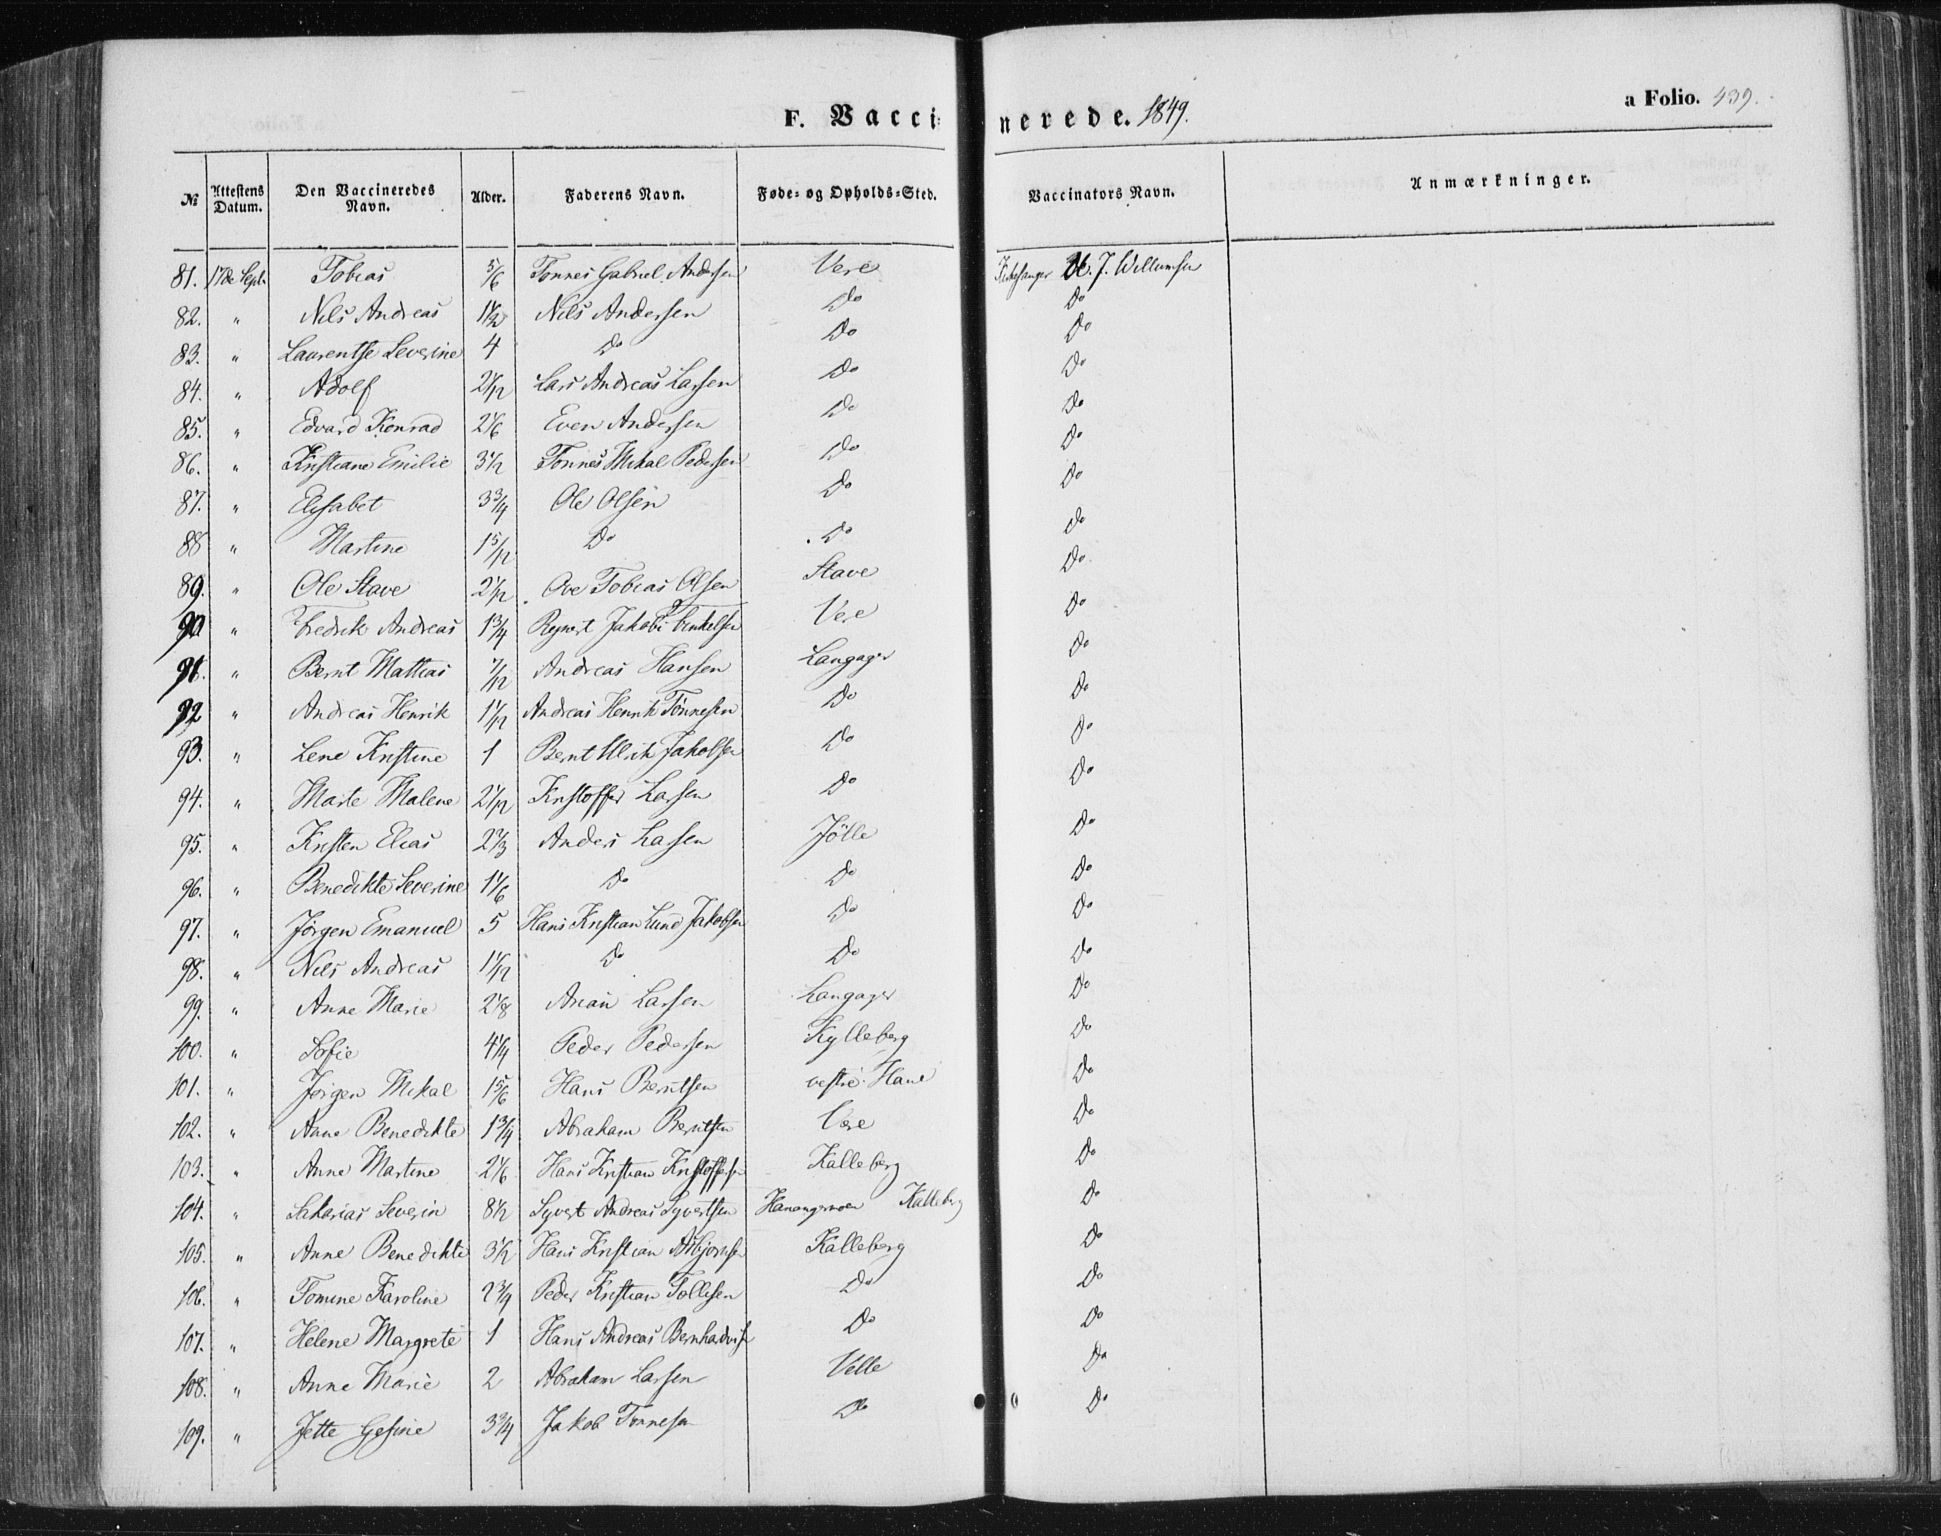 F. Vaccinerede. 1849.
a Folio. 439.
№ Attestens Datum. Den Vaccineredes Navn. Alder. Faderens Navn. Føde- og Opholds-Sted. Vaccinators Navn. Anmærkninger.
81. 17de Sept. Tobias 5/6 Tønnes Gabriel Andersen Vere Kirkesanger J. Willumsen
82. " Nils Andreas 1 1/2 Nils Andersen Do Do
83. " Laurentse Severine 4 Do Do Do
84. " Adolf 2 1/12 Lars Andreas Larsen Do Do
85. " Edvard Konrad 2 1/6 Even Andersen Do Do
86. " Kristiane Emilie 3 1/2 Tønnes Mikal Pedersen Do Do
87. " Elisabet 3 3/4 Ole Olsen Do Do
88 " Martine 1 5/12 Do Do Do
89. " Ole Stave 2 1/12 Ove Tobias Olsen Stave Do
90 " Fredrik Andreas 1 3/4 Reinert Jakob Vere Do
91. " Bernt Mattias 7/12 Andreas Hansen Langager Do
92 " Andreas Henrik 1 1/12 Andreas Henrik Tönnesen Do Do
93. " Lene Kristine 1 Bernt Ulrik Jakobsen Do Do
94. " Marte Malene 2 1/12 Kristoffer Larsen Do Do
95. " Kristen Elias 2 2/3 Anders Larsen Jölle Do
96. " Benedikte Severine 1 1/6 Do Do Do
97. " Jörgen Emanuel 5 Hans Kristian Lund Jakobsen Do Do
98. " Nils Andreas 1 1/12 Do Do Do
99. " Anne Marie 2 1/8 Larsen Langager Do
100. " Sofie 4 1/4 Peder Pedersen Kylleberg Do
101. " Jörgen Mikal 1 5/6 Hans Berntsen vestre Hane Do
102. " Anne Benedikte 1 3/4 Abraham Berntsen Vere Do
103. " Anne Martine 2 1/6 Hans Kristian Kristoffersen Kalleberg Do
104. " Sakarias Severin 8 1/2 Syvert Andreas Syvertsen Hanangermoen Kalleberg Do
105. " Anne Benedikte 3 1/2 Hans Kristian Asbjørnsen Kalleberg Do
106. " Tomine Karoline 2 3/4 Peder Kristian Tollisen Do Do
107. " Helene Margrete 1 Hans Andreas Bernhardsen Do Do
108. " Anne Marie 2 Abraham Larsen Velle Do
109. " Jette Gesine 3 3/4 Jakob Tønnesen Do Do